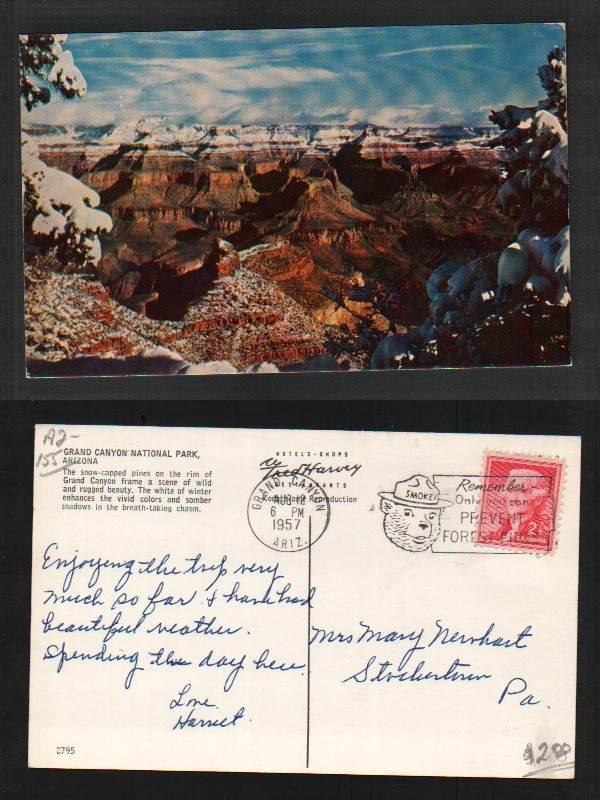 A2-
155
GRAND CANYON NATIONAL PARK,
ARIZONA
The snow-capped pines on the rim of
Grand Canyon frame a scene of wild
and rugged beauty. The white of winter
enhances the vivid colors and somber
shadows in the breath-taking chasm.
HOTELS-SHOPS
Fred Harvey
RESTAURANTS
Kodachrome Reproduction
GRAND CANYON
AUG 12
6 PM
1957
ARIZ.
SMOKEY
Remember-
Only you can
PREVENT
FOREST FIRES
2¢
U.S. POSTAGE
Enjoying the trip very
much so far & have had
beautiful weather.
Spending the day here.
Love
Harriet.
Mrs Mary Newhart
Stockertown
Pa.
C795
$2.00